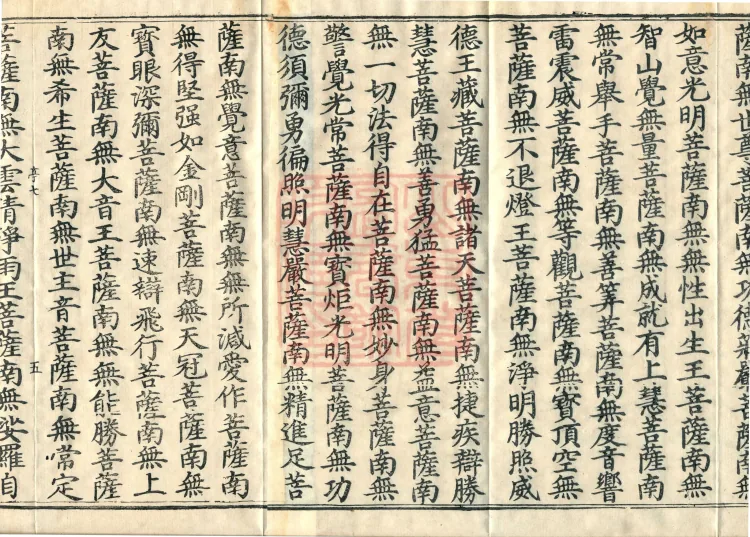 薩南無世尊菩薩南無功德莊嚴菩薩南無
如意光明菩薩南無無性出生王菩薩南無
智山覺無量菩薩南無成就有上慧菩薩南
無常舉手菩薩南無善筭菩薩南無度音響
雷震威菩薩南無等觀菩薩南無寶頂空無
菩薩南無不退燈王菩薩南無淨明勝照威
德王藏菩薩南無諸天菩薩南無捷疾辯勝
慧菩薩南無善勇猛菩薩南無益意菩薩南
無一切法得自在菩薩南無妙身菩薩南無
警覺光常菩薩南無寶炬光明菩薩南無功
德須彌勇徧照明慧嚴菩薩南無精進足菩
薩南無覺意菩薩南無無所減愛作菩薩南
無得堅强如金剛菩薩南無天冠菩薩南無
寶眼深彌菩薩南無速辯飛行菩薩南無上
友菩薩南無大音王菩薩南無無能勝菩薩
南無希生菩薩南無世主音菩薩南無常定
七 五
菩薩南無大雲清淨雨王菩薩南無娑羅自